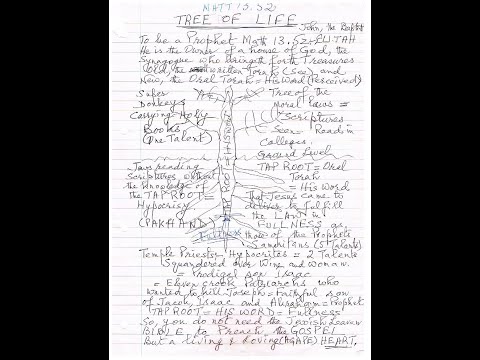 MATT 13.52
TREE OF LIFE
John, the Baptist
To be a Prophet Math 13.52 = ELIJAH
He is the Owner of a house of God, the
Synagogue who bringeth forth Treasures
Old, the written Torah (See) and
New, the Oral Torah = HIS Word (Perceived)
Super
Donkeys
Carrying Holy
Books
(One Talent)
Tree of the
Moral Laws =
Scriptures
Seen = Read in
Colleges.
Ground Level
TAP ROOT = HIS WORD
Jews reading
Scriptures without
the Knowledge of
the TAP ROOT =
Hypocrisy
(PAKHAND)
TAP ROOT = Oral
Torah
= His Word
That Jesus came to
deliver to fulfill
the LAW in
FULLNESS as,
those of the Prophets
Samaritans (5 Talents)
Temple Priests Hypocrites = 2 Talents
Squandered over Wine and Woman.
= Prodigal son Isaac
= Eleven crook Patriarchs who
wanted to kill Joseph = Faithful son
of Jacob, Isaac and Abraham = Prophet
TAP ROOT = HIS WORD = Fullness
So, you do not need the Jewish Leaven
BIBLE to Preach the GOSPEL
But a living & Loving (AGAPE) HEART.